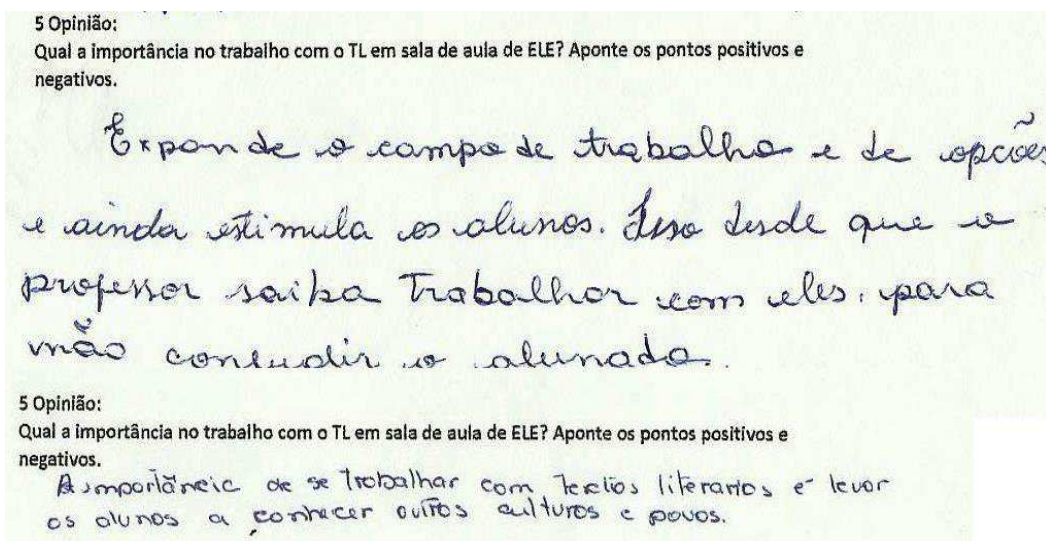 5 Opinião:
Qual a importância no trabalho com o TL em sala de aula de ELE? Aponte os pontos positivos e
negativos.
Expande o campo de trabalho e de opções
e ainda estimula os alunos. Isso desde que o
professor saiba trabalhar com eles, para
não confudir o alunado.
5 Opinião:
Qual a importância no trabalho com o TL em sala de aula de ELE? Aponte os pontos positivos e
negativos.
A importância de se trabalhar com textos literarios é levar
os alunos a conhecer outros culturos e povos.